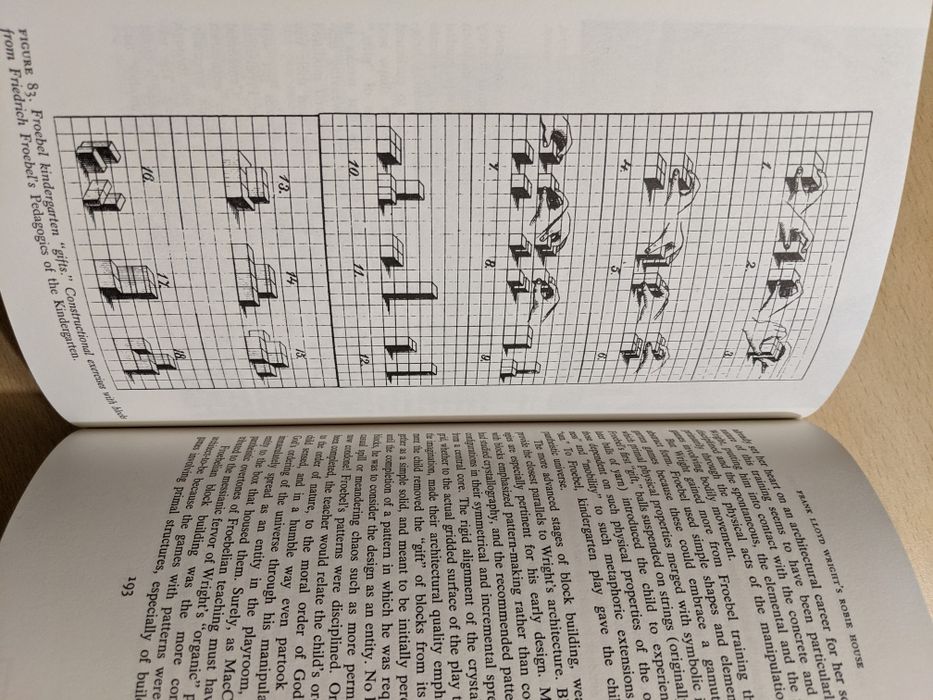 1.
2.
3.
4.
5.
6.
7.
8.
9.
10.
11.
12.
13.
14.
15.
16.
17.
18.
FIGURE 83. Froebel kindergarten "gifts." Constructional exercises with
from Friedrich Froebel's Pedagogics of the Kindergarten.
FRANK LLOYD WRIGHT'S ROBIE HOUSE
her heart on an architectural career for her
this training seems to have been particularl
putting him into contact with the concrete and
the spontaneous, the elemental and the
and the physical acts of the manipulatio
through bodily movement.
Wright gained more from Froebel training th
Froebel used simple shapes and elemen
games because these could embrace a gamut
forms merged with symbolic
physical properties
gift, balls suspended on strings (originall
of yarn) introduced the child to experien
of such physical properties of the
"mobility," to such metaphoric extensions
To Froebel, kindergarten play gave the chi
pantheistic universe.
The more advanced stages of block building, we
provide the closest parallels to Wright's architecture. B
are especially pertinent for his early design. M
blocks emphasized pattern-making rather than co
crystallography, and the recommended patte
configurations in their symmetrical and incremental spre
from a central core. The rigid alignment of the crysta
whether to the actual gridded surface of the play t
the imagination, made their architectural quality emph
the child removed the "gift" of blocks from its
as a simple solid, and meant to be initially per
until the completion of a pattern in which he was req
he was to consider the design as an entity. No
spill or meandering chaos such as more perm
condone! Froebel's patterns were disciplined. On
completed the teacher would relate the child's or
to the order of nature, to the moral order of God
sensed, and in a humble way even partook
God's ordering of the universe through his manipula
spread as an entity in the playroom,
to the box that housed them. Surely, as MacC
overtones of Froebel
to the messianic fervor of Wright's "organic" P
Froebelian teaching must hav
block building was the more cor
because the games with patterns were
involving primal structures, especially of buil
193